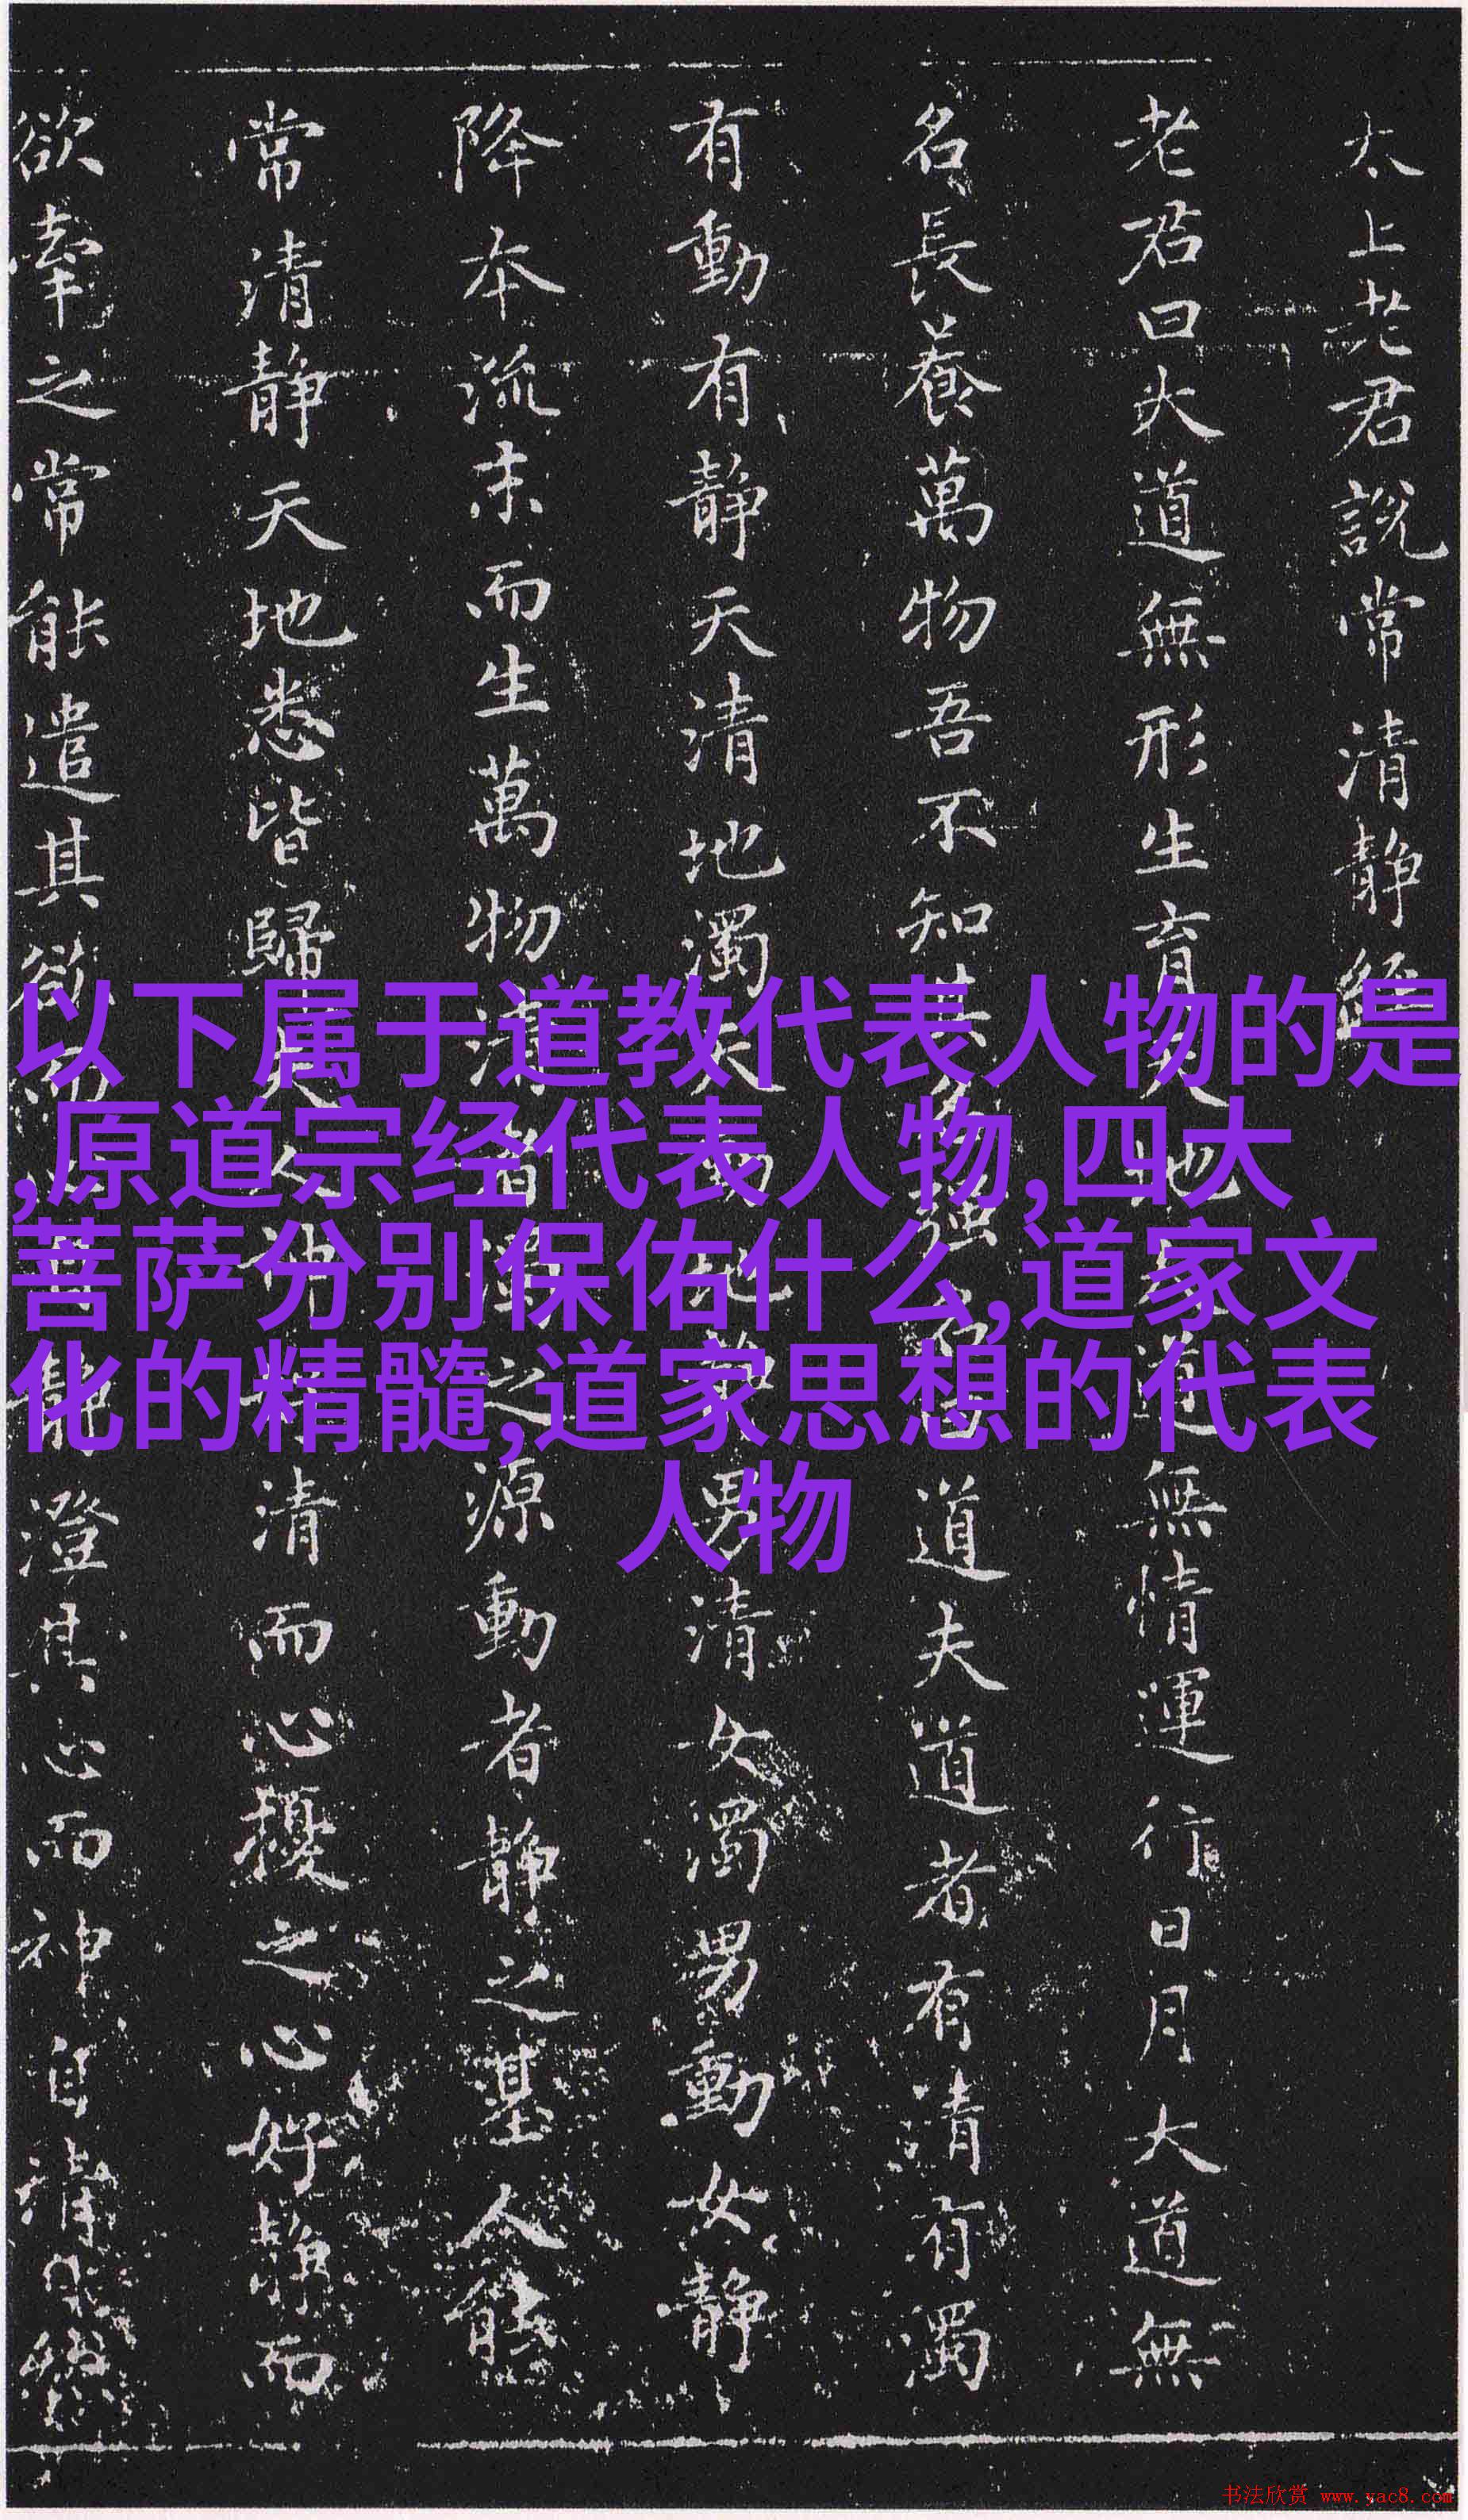 太上老君說常清靜經
老君曰大道無形生育天地大道無情運行日月大道無
名長養萬物吾不知其名強名曰道夫道者有清有濁
有動有靜天清地濁天動地靜男清女濁男動女靜
降本流末而生萬物清者濁之源動者靜之基人能
常清靜天地悉皆歸夫人神好清而心擾之心好靜而
欲牽之常能遣其欲而心自靜澄其心而神自清
以下属于道教代表人物的是
,原道宗经代表人物,四大
菩萨分别保佑什么,道家文
化的精髓,道家思想的代表
人物
书法欣赏 www.yac8.com